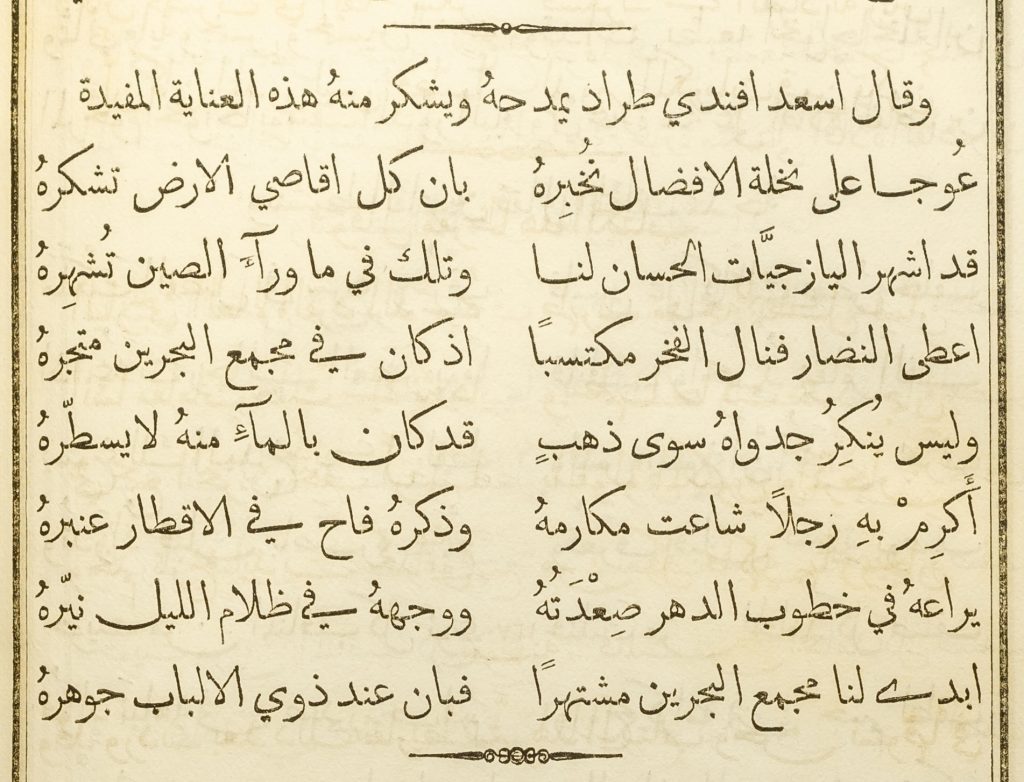 وقال اسعد افندي طراد يمدحهُ ويشكر منهُ هذه العناية المفيدة
عُوجا على نخلة الافضال نُخبِرهُ بان كل اقاصي الارض تشكرهُ
قد اشهر اليازجيَّات الحسان لنا وتلك في ما ورآءَ الصين تُشهِرهُ
اعطى النضار فنال الفخر مكتسبًا اذ كان في مجمع البحرين متجرهُ
وليس يُنكِرُ جدواهُ سوى ذهبٍ قد كان بالمآءِ منهُ لا يسطّرهُ
أَكرِمْ بهِ رجلاً شاعت مكارمهُ وذكرهُ فاح في الاقطار عنبرهُ
يراعهُ في خطوب الدهر صِعْدَتُهُ ووجههُ في ظلام الليل نيّرهُ
ابدى لنا مجمع البحرين مشتهرًا فبان عند ذوي الالباب جوهرهُ